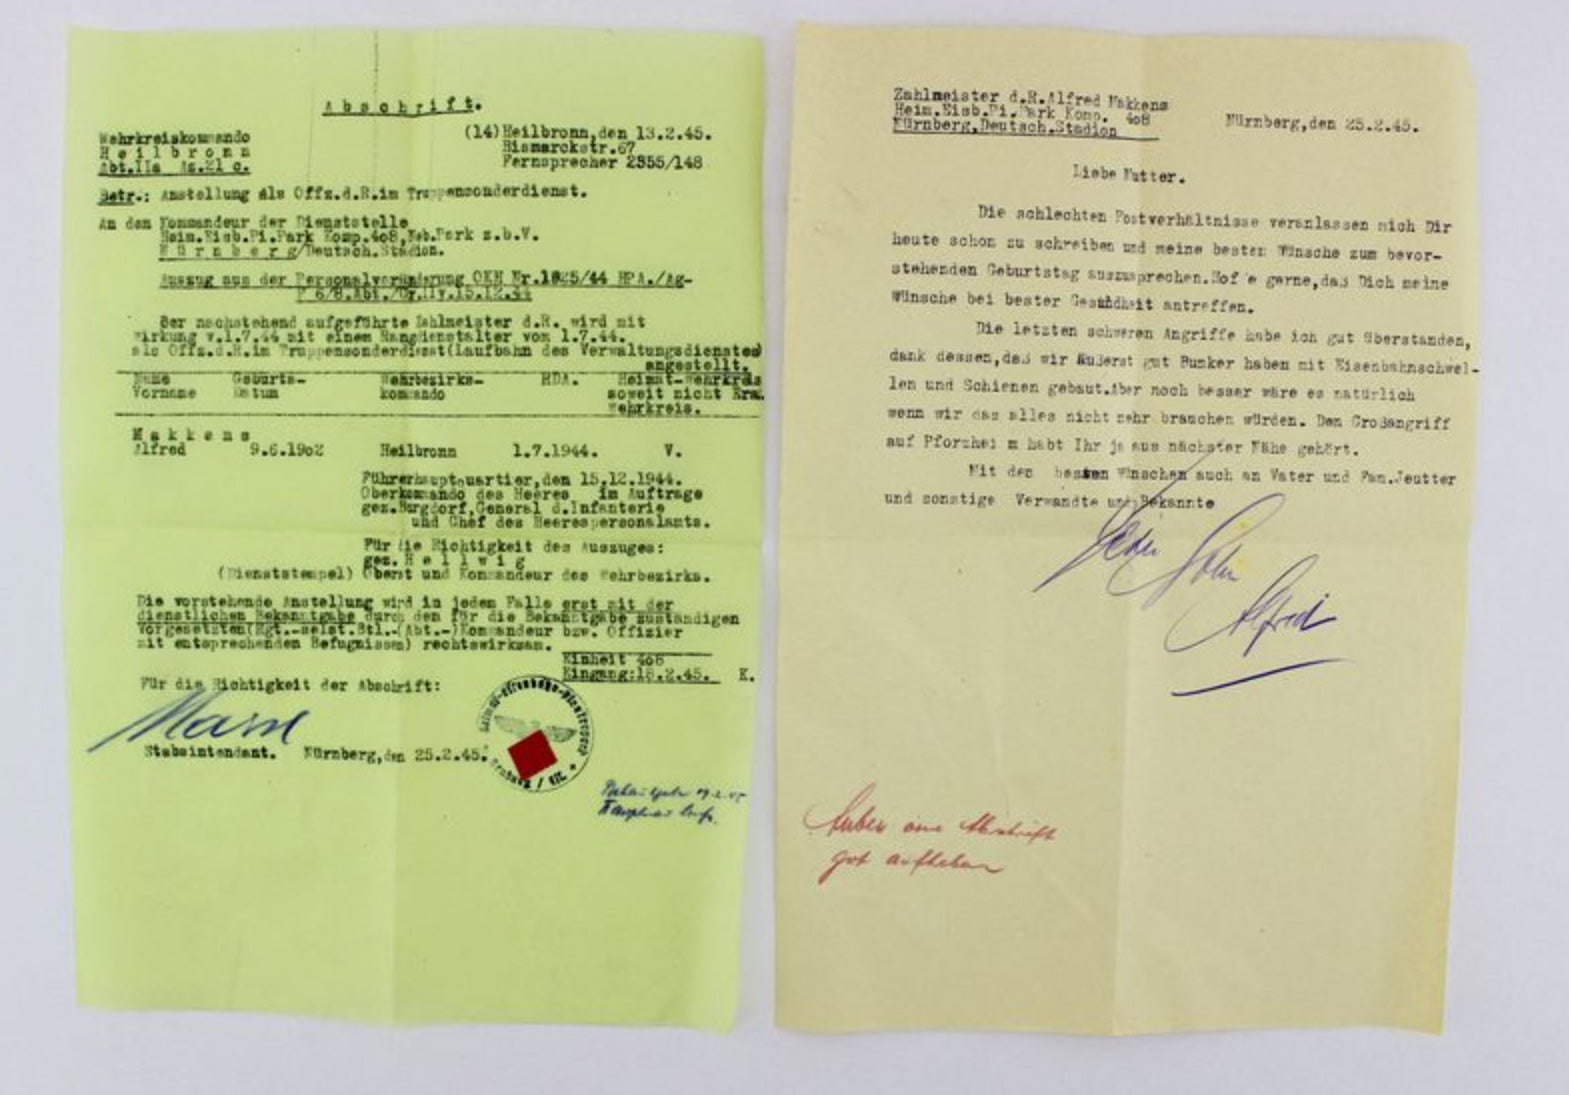 Abschrift.
Wehrkreiskommando
Heilbronn
Abt.IIa Az.21 c.
(14)Heilbronn,den 13.2.45.
Bismarckstr.67
Fernsprecher 2355/148
Betr.: Anstellung als Offz.d.R.im Truppensonderdienst.
An den Kommandeur der Dienststelle
Heim.Eisb.Pi.Park Komp.408,Neb.Park z.b.V.
Nürnberg/Deutsch.Stadion.
Auszug aus der Personalveränderung OKH Nr.1825/44 HPA./Ag-
P 6/8.Abt./
Der nachstehend aufgeführte Zahlmeister d.R. wird mit
Wirkung v.1.7.44 mit einem Rangdienstalter vom 1.7.44.
als Offz.d.R.im Truppensonderdienst(Laufbahn des Verwaltungsdienstes)
angestellt.
Name Geburts- Wehrbezirks- RDA. Heimat-Wehrkreis
Vorname Datum kommando soweit nicht
Wehrkreis.
Makkens
Alfred 9.6.1902 Heilbronn 1.7.1944. V.
Führerhauptquartier,den 15.12.1944.
Oberkommando des Heeres im Auftrage
gez.Burgdorf,General d.Infanterie
und Chef des Heerespersonalamts.
Für die Richtigkeit des Auszuges:
gez. Hellwig
(Dienststempel) Oberst und Kommandeur des Wehrbezirks.
Die vorstehende Anstellung wird in jedem Falle erst mit der
dienstlichen Bekanntgabe durch den für die Bekanntgabe zuständigen
Vorgesetzten(Rgt.-selst.Btl.-(Abt.-)Kommandeur bzw. Offizier
mit entsprechenden Befugnissen) rechtswirksam.
Einheit 408
Eingang:18.2.45. K.
Für die Richtigkeit der Abschrift:
Stabsintendant. Nürnberg,den 25.2.45.
Zahlmeister d.R.Alfred Makkens
Heim.Eisb.Pi.Park Komp. 408
Nürnberg,Deutsch.Stadion
Nürnberg,den 25.2.45.
Liebe Mutter.
Die schlechten Postverhältnisse veranlassen mich Dir
heute schon zu schreiben und meine besten Wünsche zum bevor-
stehenden Geburtstag auszusprechen.Hof e gerne,daß Dich meine
Wünsche bei bester Gesundheit antreffen.
Die letzten schweren Angriffe habe ich gut überstanden,
dank dessen,daß wir äußerst gut Bunker haben mit Eisenbahnschwel-
len und Schienen gebaut.Aber noch besser wäre es natürlich
wenn wir das alles nicht mehr brauchen würden. Den Großangriff
auf Pforzhei m habt Ihr ja aus nächster Nähe gehört.
Mit den besten Wünschen auch an Vater und Fam.Jeutter
und sonstige Verwandte und Bekannte
Sohn
Alfred
Abschrift
gut aufheben